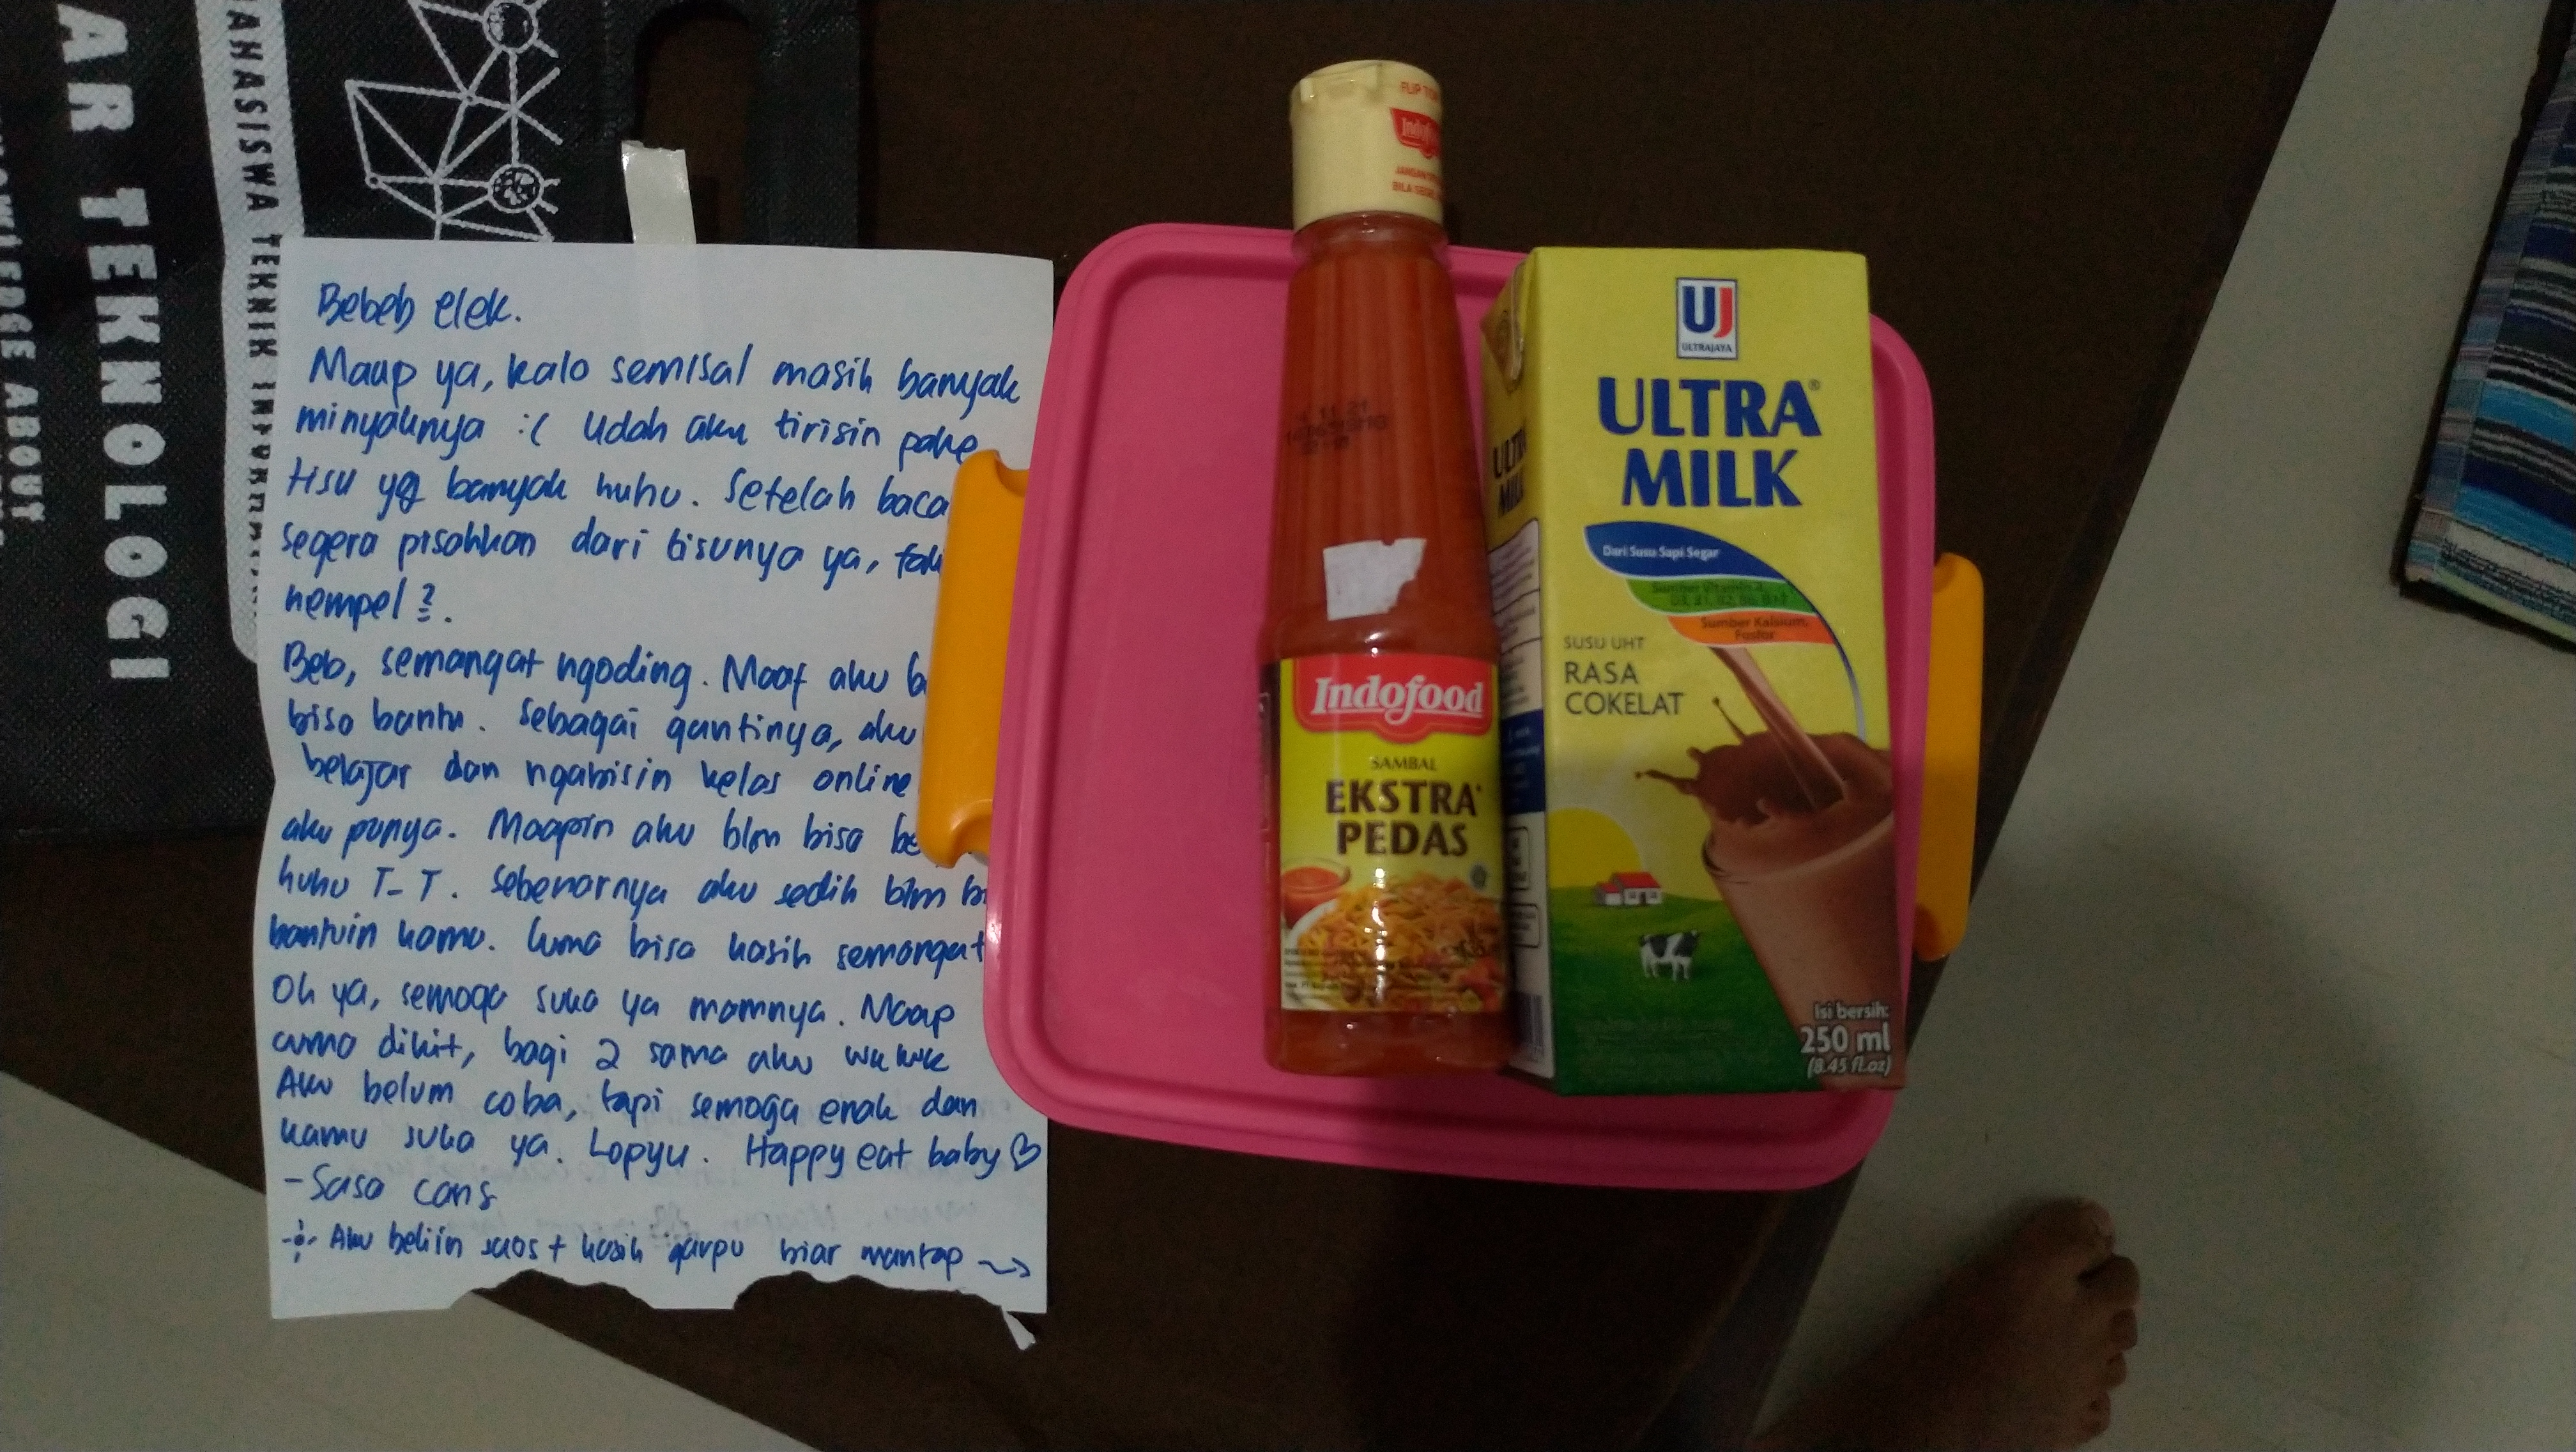 AR TEKNOLOGI
AHASISWA TEKNIK
OWLEDGE ABOUT
Bebeb elek.
Maap ya, kalo semisal masih banyak
minyaknya :( Udah aku tirisin pake
tisu yg banyak huhu. Setelah baca
segera pisahkan dari tisunya ya,
nempel?.
Beb, semangat ngoding. Maaf aku
bisa bantu. Sebagai gantinya, aku
belajar dan ngabisin kelas online
aku punya. Maapin aku blm bisa
huhu T_T. Sebenarnya aku sedih blm
bantuin kamu. Cuma bisa kasih semangat
Oh ya, semoga suka ya mamnya. Maap
cuma dikit, bagi 2 sama aku wkwk
Aku belum coba, tapi semoga enak dan
kamu suka ya. Lopyu. Happy eat baby ♡
- Sasa cans
Aku beliin saos + kasih garpu biar mantap →
FLIP TOP
Indofood
JANGAN
BILA SEGEL
Indofood
SAMBAL
EKSTRA
PEDAS
UJ
ULTRAJAYA
ULTRA®
MILK
Dari Susu Sapi Segar
Sumber Kalsium,
Fosfor
SUSU UHT
RASA
COKELAT
Isi bersih:
250 ml
(8.45 fl.oz)
ULTRA
MILK